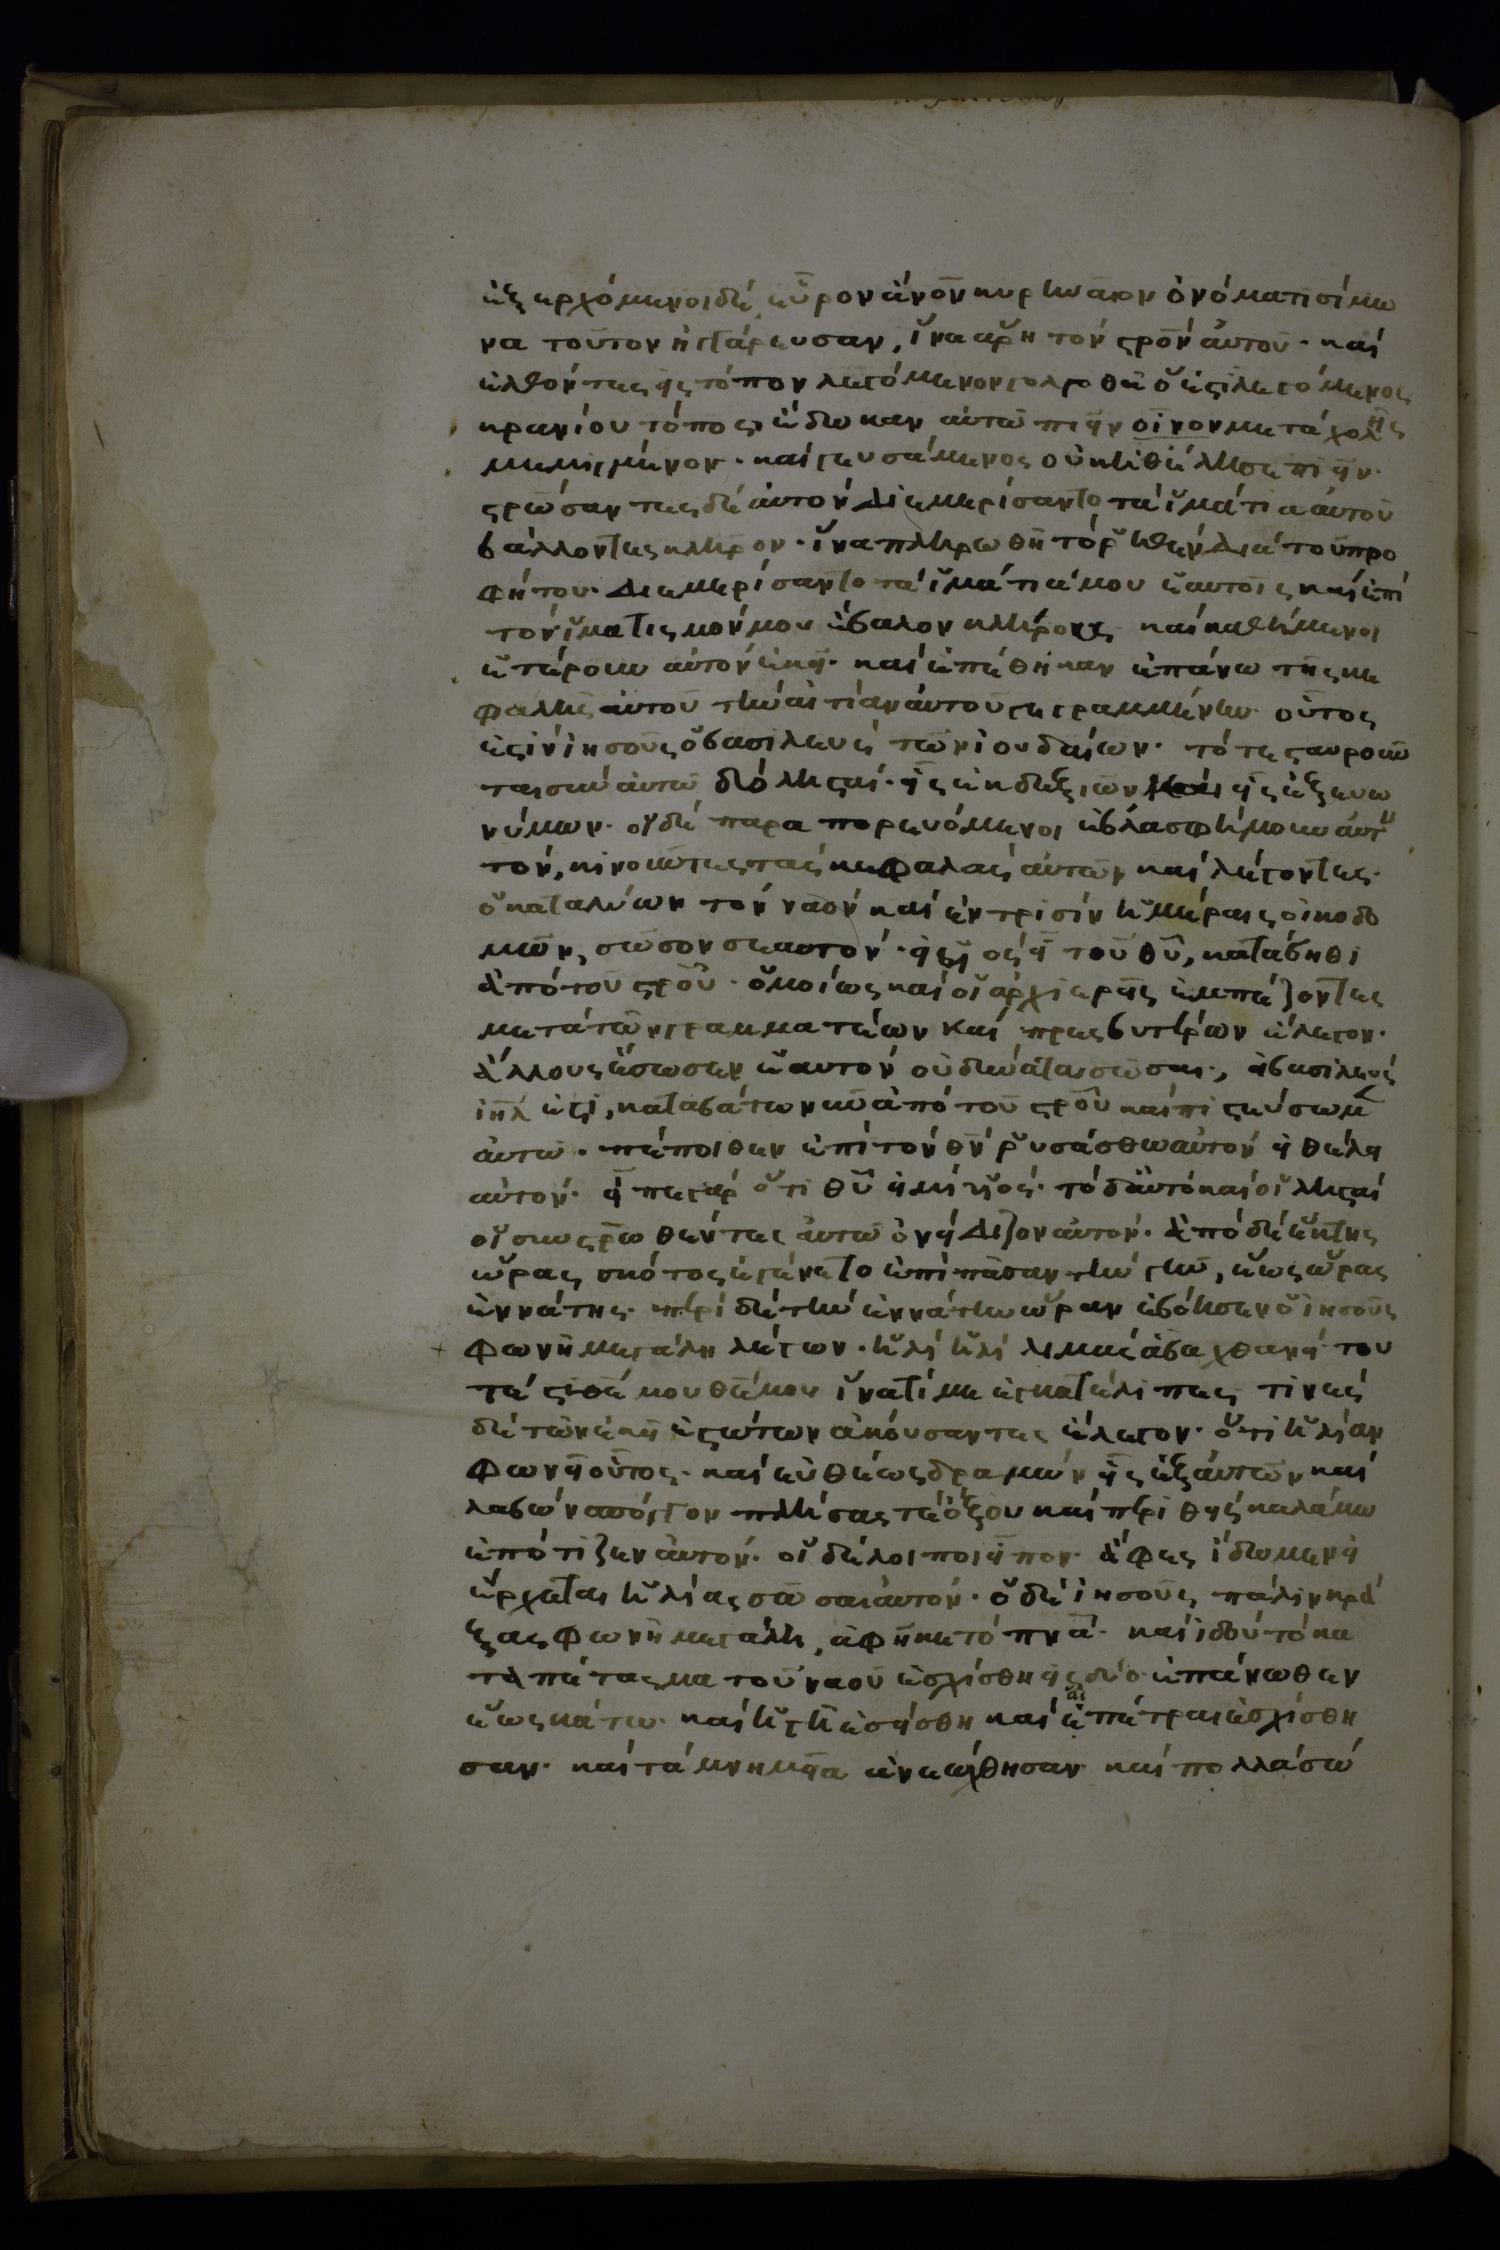 ἐξερχόμενοι δὲ εὗρον ἄνον κυρηναῖον ὀνόματι σίμω
να τοῦτον ἠγγάρευσαν, ἵνα ἄρη τὸν σρὸν αὐτοῦ· καὶ
ἐλθόντες εἰς τόπον λεγόμενον γολγοθᾶ ὅ ἐστι λεγόμενος
κρανίου τόπος· ἔδωκαν αὐτῶ πιεῖν οἶνον μετὰ χολῆς
μεμιγμένον· καὶ γευσάμενος οὐκ ἠθέλησε πιεῖν·
σρώσαντες δὲ αὐτὸν διεμερίσαντο τὰ ἱμάτια αὐτοῦ
βάλλοντες κλῆρον· ἵνα πληρωθῆ τὸ ῥηθὲν διὰ τοῦ προ
φήτου· διεμερίσαντο τὰ ἱμάτιά μου ἑαυτοῖς καὶ ἐπὶ
τὸν ἱματισμόν μου ἔβαλον κλῆρον καὶ καθήμενοι
ἐτήρουν αὐτὸν ἐκεῖ· καὶ ἐπέθηκαν ἐπάνω τῆς κε
φαλῆς αὐτοῦ τὴν αἰτίαν αὐτοῦ γεγραμμένην· οὗτός
ἐστιν ἰησοῦς ὁ βασιλεὺς τῶν ἰουδαίων· τότε σταυροῦν
ται σὺν αὐτῶ δύο λησταί· εἷς ἐκ δεξιῶν καὶ εἷς ἐξ εὐω
νύμων· οἱ δὲ παραπορευόμενοι ἐβλασφήμουν αὐ
τόν, κινοῦντες τὰς κεφαλὰς αὐτῶν καὶ λέγοντες·
ὁ καταλύων τὸν ναὸν καὶ ἐν τρισὶν ἡμέραις οἰκοδο
μῶν, σῶσον σεαυτόν· εἰ υἱὸς εἶ τοῦ θῦ, κατάβηθι
ἀπὸ τοῦ σροῦ· ὁμοίως καὶ οἱ ἀρχιερεῖς ἐμπέζοντες
μετὰ τῶν γραμματέων καὶ πρεσβυτέρων ἔλεγον·
ἄλλους ἔσωσεν ἑαυτὸν οὐ δύναται σῶσαι, εἰ βασιλεὺς
ιηλ ἐστι, καταβάτω νῦν ἀπὸ τοῦ σροῦ καὶ πιστεύσωμεν
αὐτῶ· πέποιθεν ἐπὶ τὸν θν ῥυσάσθω αὐτὸν εἰ θέλει
αὐτόν· εἶπε γὰρ ὅτι θῦ εἰμὶ υἱός· τὸ δ' αὐτὸ καὶ οἱ λησταὶ
οἱ συσρωθέντες αὐτῶ ὀνείδιζον αὐτόν· ἀπὸ δὲ ἕκτης
ὥρας σκότος ἐγένετο ἐπὶ πᾶσαν τὴν γῆν, ἕως ὥρας
ἐννάτης· περὶ δὲ τὴν ἐννάτην ὥραν ἐβόησεν ὁ ἰησοῦς
φωνῆ μεγάλη λέγων· ἡλὶ ἡλὶ λιμὰ σαβαχθανεί· του
τέστι θεέ μου θεέ μου ἱνατί με ἐγκατέλιπες τινὲς
δὲ τῶν ἐκεῖ ἑστώτων ἀκούσαντες ἔλεγον· ὅτι ἡλίαν
φωνεῖ οὗτος· καὶ εὐθέως δραμὼν εἷς ἐξ αὐτῶν καὶ
λαβὼν σπόγγον πλήσας τε ὄξου καὶ περιθεὶς καλάμω
ἐπότιζεν αὐτόν· οἱ δὲ λοιποὶ εἶπον· ἄφες ἴδωμεν εἰ
ἔρχεται ἡλίας σῶσαι αὐτόν· ὁ δὲ ἰησοῦς πάλιν κρά
ξας φωνῆ μεγάλη, ἀφῆκε τὸ πνα· καὶ ἰδοὺ τὸ κα
ταπέτασμα τοῦ ναοῦ ἐσχίσθη εἰς δύο ἐπάνωθεν
ἕως κάτω· καὶ ἡ γῆ ἐσείσθη καὶ αἱ πέτραι ἐσχίσθη
σαν· καὶ τὰ μνημεῖα ἀνεώχθησαν καὶ πολλὰ σώ